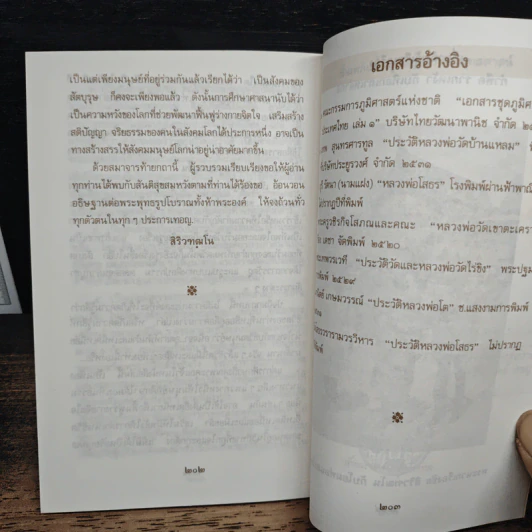 เป็นแต่เพียงมนุษย์ที่อยู่ร่วมกันแล้วเรียกได้ว่า เป็นสังคมของ
สัตบุรุษ ก็คงจะเพียงพอแล้ว ดังนั้นการศึกษาศาสนานับได้ว่า
เป็นความหวังของโลกที่ช่วยพัฒนาฟื้นฟูร่างกายจิตใจ เสริมสร้าง
สติปัญญา จริยธรรมของคนในสังคมโลกได้ประการหนึ่ง อาจเป็น
ทางสร้างสรรให้สังคมมนุษย์โลกน่าอยู่น่าอาศัยมากขึ้น
ด้วยเสมาจารท้ายกถานี้ ผู้รวบรวมเรียบเรียงขอให้ผู้อ่าน
ทุกท่านได้พบกับสันติสุขสมหวังตามที่ท่านได้ร้องขอ อ้อนวอน
อธิษฐานต่อพระพุทธรูปโบราณทั้งห้าพระองค์ ให้จงถ้วนทั่ว
ทุกตัวตนในทุก ๆ ประการเทอญ.
สิริวฑฺฒโน
๒๐๒
เอกสารอ้างอิง
คณะกรรมการภูมิศาสตร์แห่งชาติ “เอกสารชุดภูมิ
ประเทศไทย เล่ม ๑” บริษัทไทยวัฒนาพานิช จำกัด
สุนทรศารทูล “ประวัติหลวงพ่อวัดบ้านแหลม”
บริษัทประยูรวงศ์ จำกัด ๒๕๓๑
(นามแฝง) “หลวงพ่อโสธร” โรงพิมพ์ผ่านฟ้าพา
ปรากฏปีที่พิมพ์
พระครูวชิรกิจโสภณและคณะ “หลวงพ่อวัดเขาตะเครา
เดชา จัดพิมพ์ ๒๕๒๐
“ประวัติวัดและหลวงพ่อวัดไร่ขิง” พระปฐม
พิมพ์ ๒๕๒๙
เกษมวรรณ์ “ประวัติหลวงพ่อโต” ช.แสงงามการพิมพ์
วรารามวรวิหาร “ประวัติหลวงพ่อโสธร” ไม่ปรากฏ
พิมพ์
๒๐๓